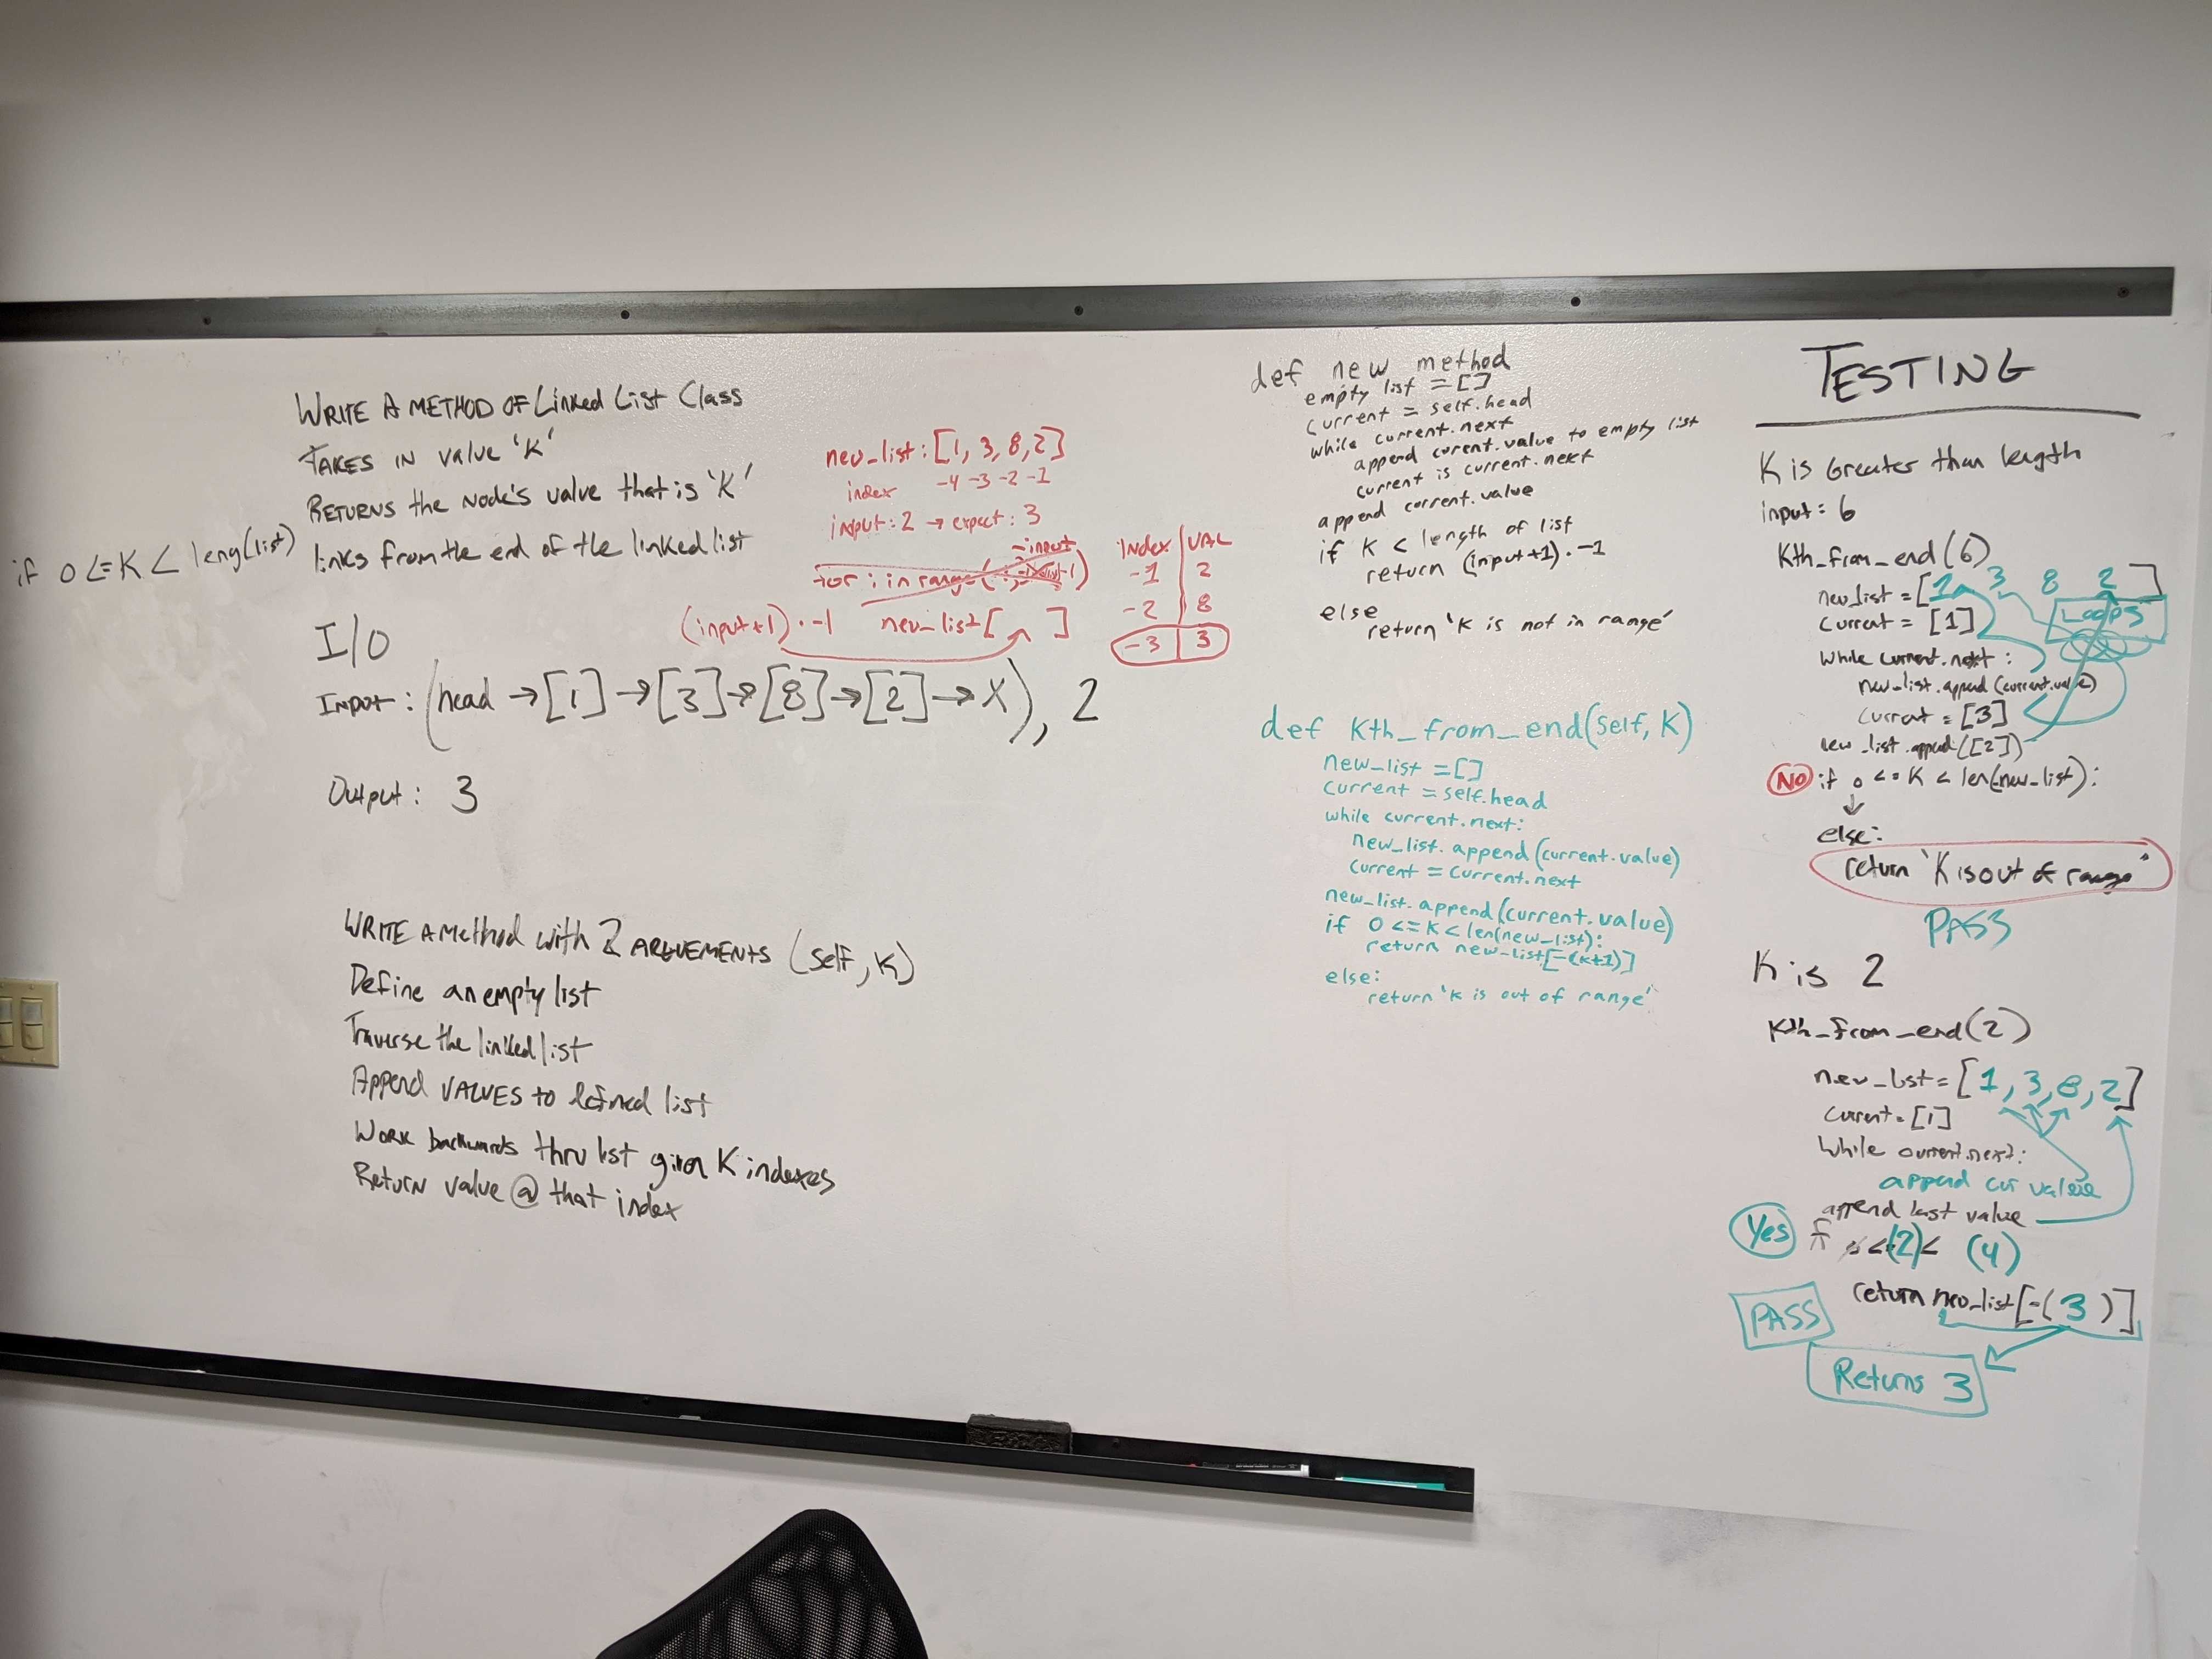 WRITE A METHOD OF Linked List Class
TAKES IN value 'K'
RETURNS the NODE'S value that is 'K'
links from the end of the linked list
if 0 <= K < leng(list)
I/O
INPUT : (head → [1] → [3] → [8] → [2] → X), 2
Output : 3
WRITE A Method with 2 ARGUEMENTS (self, K)
Define an empty list
Traverse the linked list
Append VALUES to defined list
Work backwards thru list given K indexes
Return value @ that index
new_list : [1, 3, 8, 2]
index -4 -3 -2 -1
input : 2 → expect : 3
-input
for i in range(
(input+1) · -1 new_list[ ]
Index | VAL
-1 | 2
-2 | 8
-3 | 3
def new method
empty list = []
current = self.head
while current.next
append current.value to empty list
current is current.next
append current.value
if K < length of list
return (input+1) · -1
else
return 'K is not in range'
def Kth_from_end(self, K)
new_list = []
current = self.head
while current.next:
new_list.append(current.value)
current = current.next
new_list.append(current.value)
if 0 <= K < len(new_list):
return new_list[-(k+1)]
else:
return 'K is out of range'
TESTING
K is Greater than length
input : 6
Kth_from_end(6)
new_list = [1 3 8 2]
Loops
current = [1]
While current.next :
new_list.append(current.value)
current = [3]
new_list.append([2])
NO if 0 <= K < len(new_list):
else:
return 'K is out of range'
PASS
K is 2
Kth_from_end(2)
new_list = [1, 3, 8, 2]
current = [1]
While current.next:
append cur value
append last value
Yes if 0 < (2) < (4)
return new_list[-(3)]
PASS
Returns 3